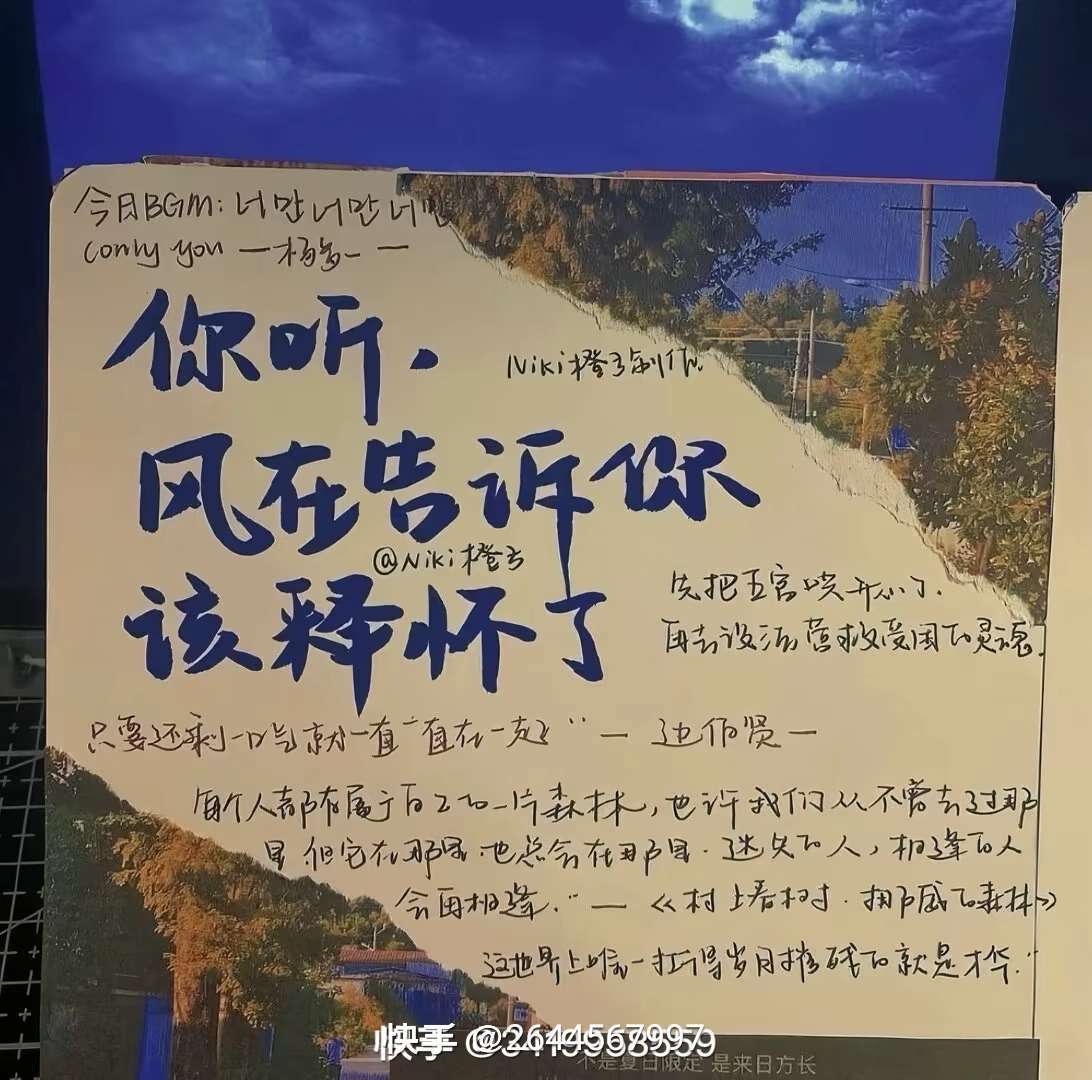 今日BGM: 너만 너만 너만
(only you 一杨多一 一
你听,
Niki橙子制作
风在告诉你
@Niki橙子
该释怀了
先把五官哄开心了.
再去设法营救受困的灵魂.
只要还剩一口气就一直一直在一起" — 边伯贤 —
每个人都有属于自己的一片森林,也许我们从不曾去过那
里 但它在那里.也总会在那里.迷失的人,相逢的人
会再相逢." — 《村上春树 . 挪威的森林》
这世界上唯一扛得岁月摧残的就是才华."
快手
不是夏日限定 是来日方长